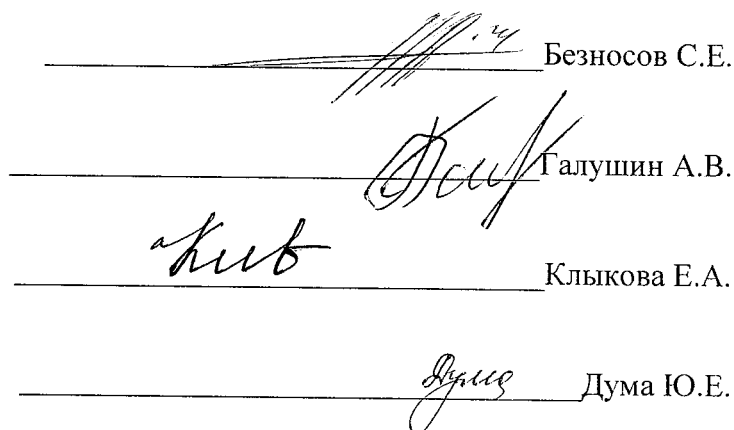 Безносов С.Е.
Галушин А.В.
Клыкова Е.А.
Дума Дума Ю.Е.